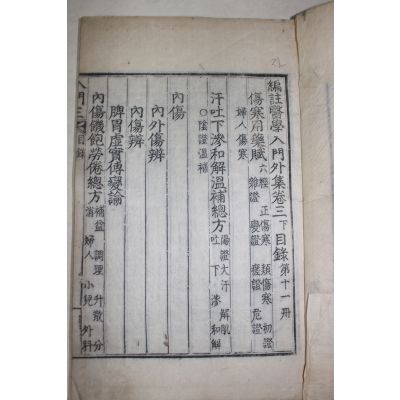 編註醫學入門外集卷三下目錄 第十一冊
傷寒用藥賦 六經 正傷寒 類傷寒 初證
雜證 變證 壞證 危證
婦人傷寒
汗吐下滲和解溫補總方 陽證大汗 解肌
吐 下 滲 和解
○陰證溫補
內傷
內外傷辨
內傷辨
脾胃虛實傳變論
內傷饑飽勞倦總方 補益 調理 升散 分
消 婦人 小兒 外科
入門三 目錄